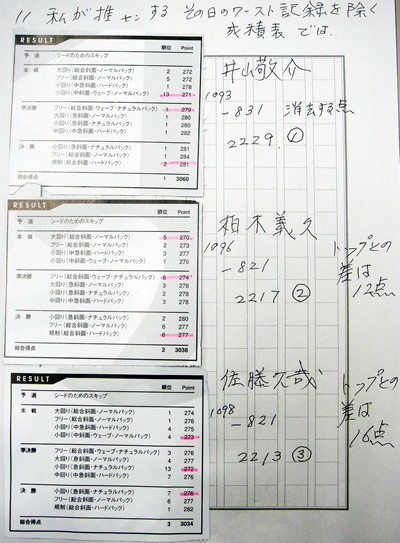 11 私が推センする その日のワースト記録を除く
成績表では
RESULT 順位 Point
予選 シードのためのスキップ
本戦 大回り(総合斜面・ノーマルバック) 2 272
フリー(総合斜面・ノーマルバック) 5 272
小回り(中急斜面・ハードバック) 1 278
小回り(中斜面・ウェーブ・ノーマルバック) 13 271
準決勝 フリー(総合斜面・ウェーブ・ナチュラルバック) 1 279
大回り(急斜面・ナチュラルバック) 1 280
小回り(急斜面・ナチュラルバック)
中回り(中急斜面・ハードバック)
決勝 小回り(急斜面・ナチュラルバック) 1 281
フリー(総合斜面・ナチュラルバック) 1 284
規制(総合斜面・ハードバック) 2 281
総合得点 1 3060
井山敬介
1093
-831 消去する点
2229. ①
RESULT 順位 Point
予選 シードのためのスキップ
本戦 大回り(総合斜面・ノーマルバック) 5 270
フリー(総合斜面・ノーマルバック) 2 273
小回り(中急斜面・ハードバック) 3 277
小回り(中斜面・ウェーブ・ノーマルバック) 1
準決勝 フリー(総合斜面・ウェーブ・ナチュラルバック) 6 274
大回り(急斜面・ナチュラルバック) 3 278
小回り(急斜面・ナチュラルバック) 2 278
中回り(中急斜面・ハードバック) 3 278
決勝 小回り(急斜面・ナチュラルバック) 2 280
フリー(総合斜面・ナチュラルバック) 6 277
規制(総合斜面・ハードバック) 6 277
総合得点 2 3038
柏木義久
1096
-821
2217 ②
トップとの
差は
12点
RESULT 順位 Point
予選 シードのためのスキップ
本戦 大回り(総合斜面・ノーマルバック) 1 274
フリー(総合斜面・ノーマルバック) 1 276
小回り(中急斜面・ハードバック) 4 275
小回り(中斜面・ウェーブ・ノーマルバック) 4 273
準決勝 フリー(総合斜面・ウェーブ・ナチュラルバック) 3 276
大回り(急斜面・ナチュラルバック) 4 277
小回り(急斜面・ナチュラルバック) 13 272
中回り(中急斜面・ハードバック) 7 276
決勝 小回り(急斜面・ナチュラルバック) 7 276
フリー(総合斜面・ナチュラルバック) 6 277
規制(総合斜面・ハードバック) 1 282
総合得点 3 3034
佐藤久哉
1098
-821
2213 ③
トップとの
差は
16点